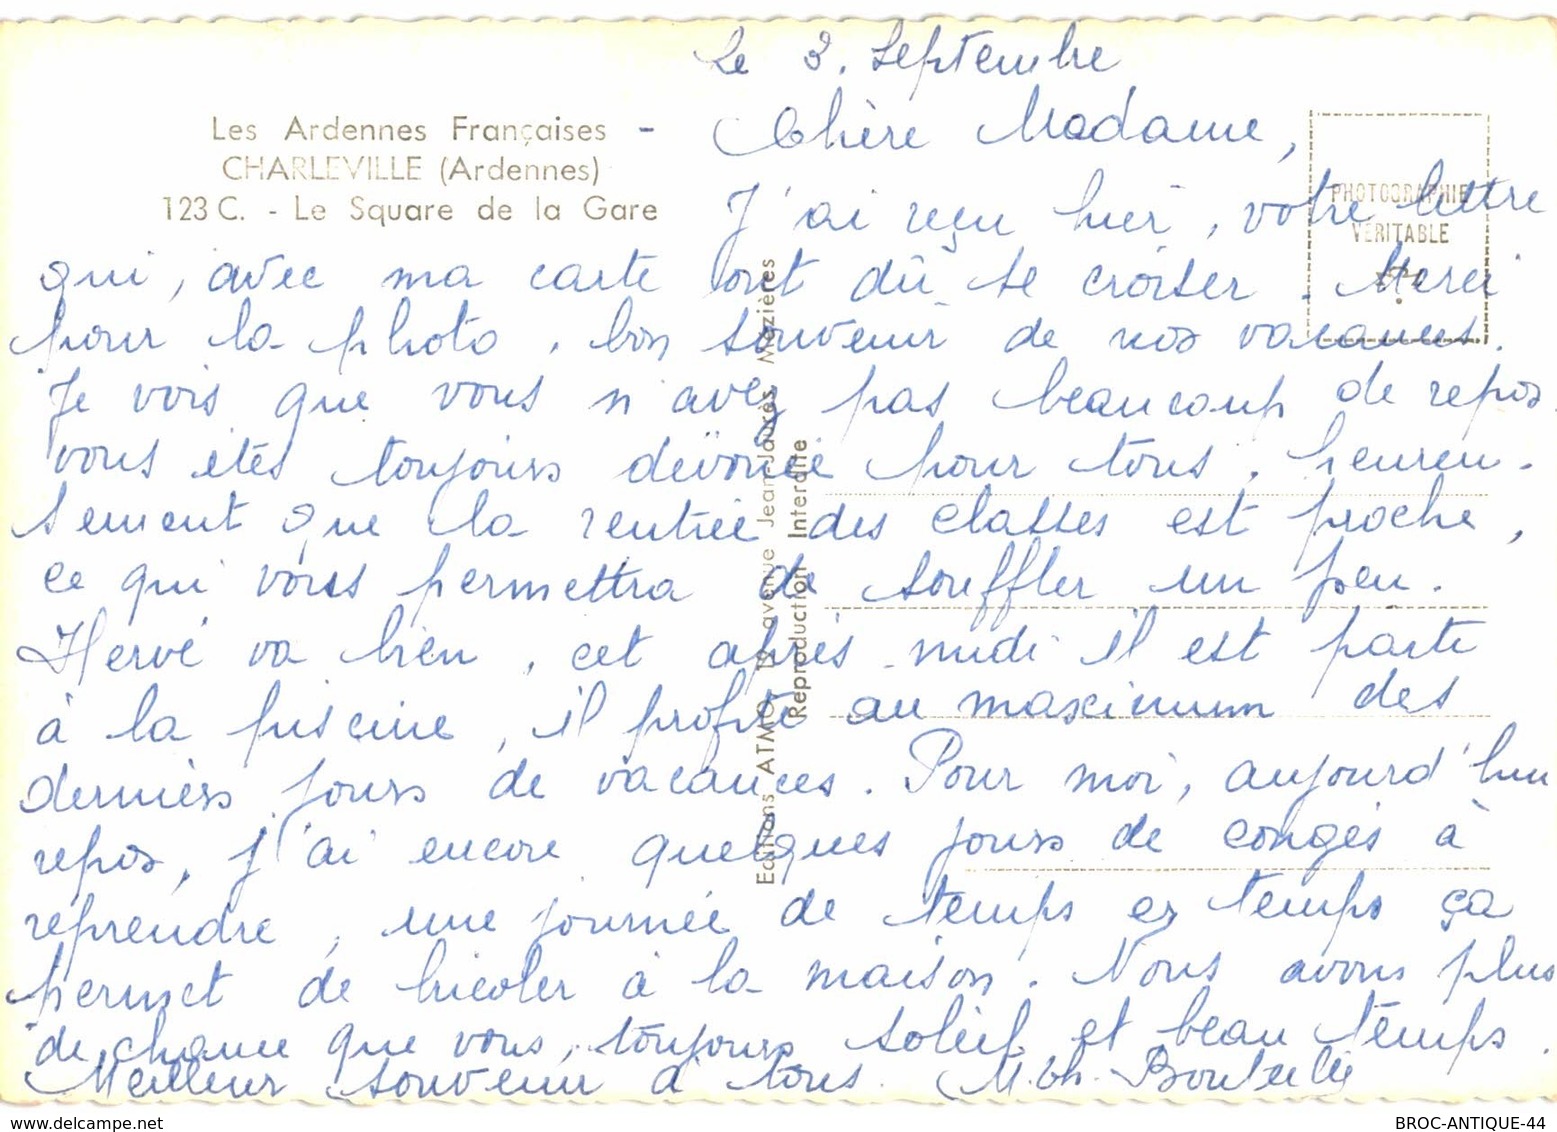 Le 3. Septembre
Les Ardennes Françaises -
CHARLEVILLE (Ardennes)
123 C. - Le Square de la Gare
Chère Madame,
PHOTOGRAPHIE
VÉRITABLE
J'ai reçu hier, votre lettre
qui, avec ma carte ont dû se croiser. Merci
pour la photo, bon souvenir de nos vacances.
Je vois que vous n'avez pas beaucoup de repos.
vous êtes toujours dévouée pour tous, heureu-
sement que la rentrée des classes est proche,
ce qui vous permettra de souffler un peu.
Hervé va bien, cet après-midi il est parti
à la piscine, il profite au maximum des
derniers jours de vacances. Pour moi, aujourd'hui
repos, j'ai encore quelques jours de congés à
reprendre, une journée de temps en temps ça
permet de bricoler à la maison. Nous avons plus
de chance que vous, toujours soleil et beau temps.
Meilleur souvenir à tous. M.
Editions ATMO 19 avenue Jean-Jaurès Mézières
Reproduction Interdite
delcampe.net
BROC-ANTIQUE-44